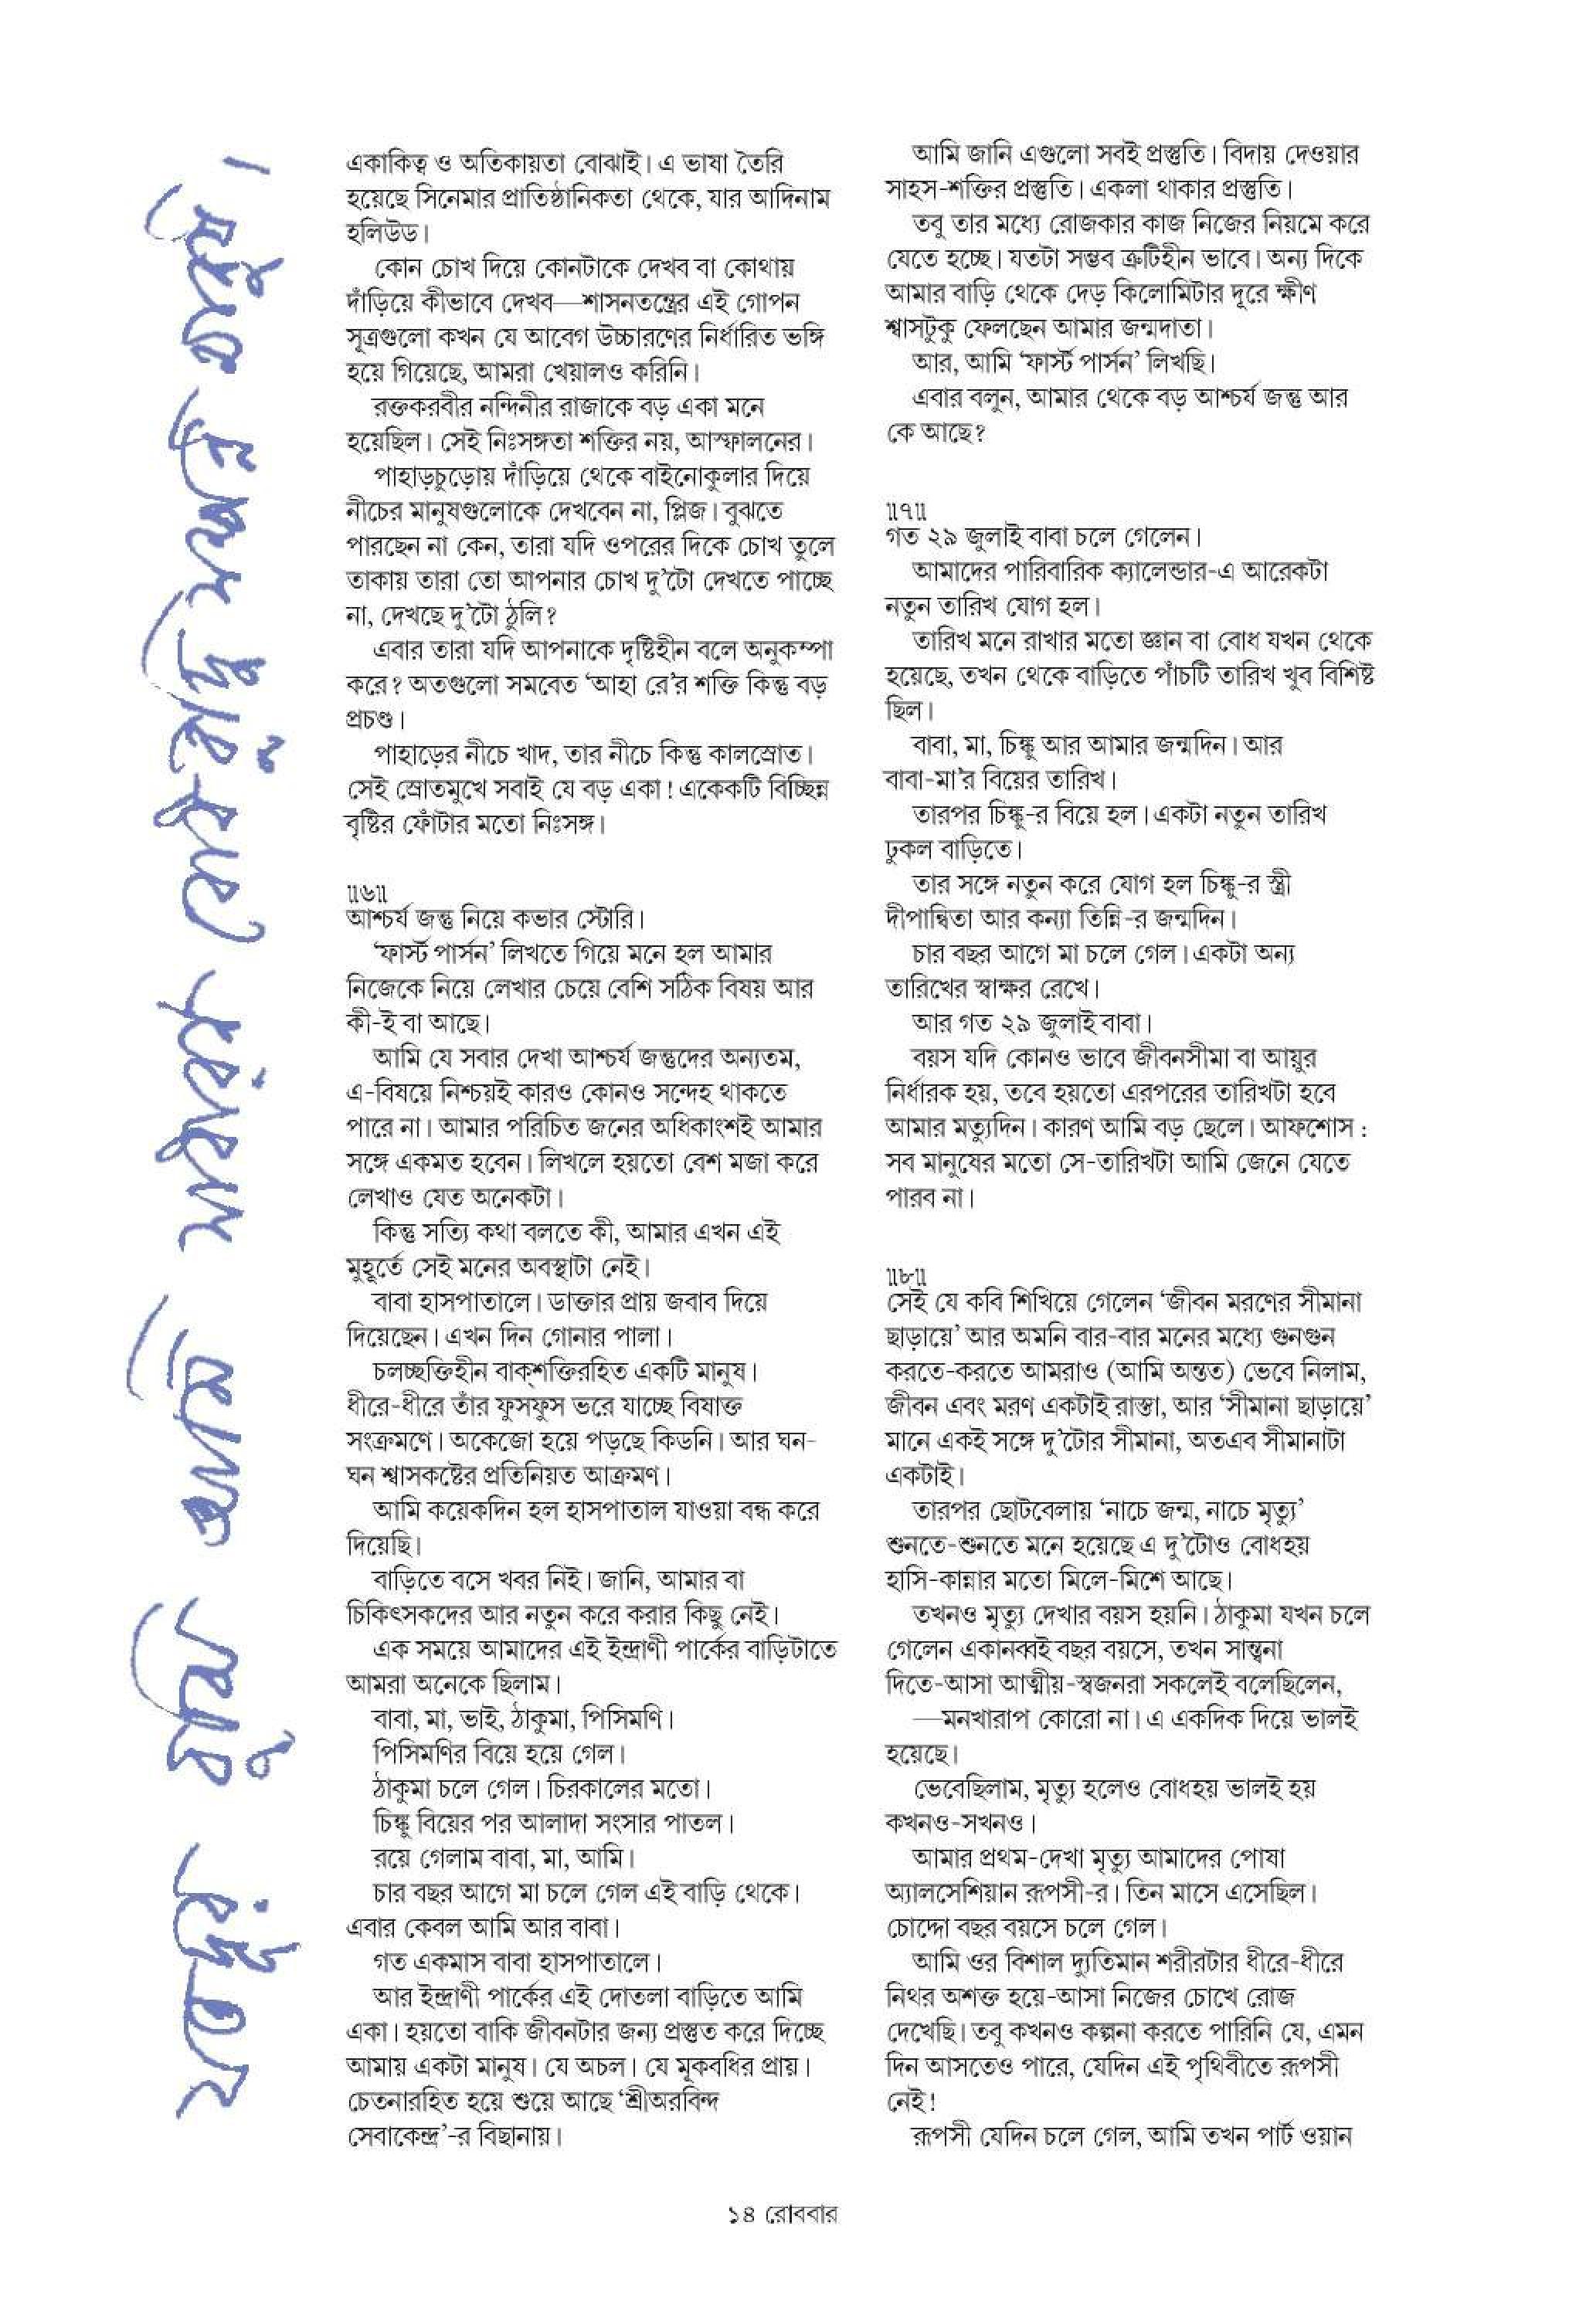 যতদূর বুঝি আমি সাধারণ বোধবুদ্ধি সম্পন্ন মানুষ।
একাকিত্ব ও অতিকায়তা বোঝাই। এ ভাষা তৈরি
হয়েছে সিনেমার প্রাতিষ্ঠানিকতা থেকে, যার আদিনাম
হলিউড।
কোন চোখ দিয়ে কোনটাকে দেখব বা কোথায়
দাঁড়িয়ে কীভাবে দেখব—শাসনতন্ত্রের এই গোপন
সূত্রগুলো কখন যে আবেগ উচ্চারণের নির্ধারিত ভঙ্গি
হয়ে গিয়েছে, আমরা খেয়ালও করিনি।
রক্তকরবীর নন্দিনীর রাজাকে বড় একা মনে
হয়েছিল। সেই নিঃসঙ্গতা শক্তির নয়, আস্ফালনের।
পাহাড়চুড়োয় দাঁড়িয়ে থেকে বাইনোকুলার দিয়ে
নীচের মানুষগুলোকে দেখবেন না, প্লিজ। বুঝতে
পারছেন না কেন, তারা যদি ওপরের দিকে চোখ তুলে
তাকায় তারা তো আপনার চোখ দু'টো দেখতে পাচ্ছে
না, দেখছে দু'টো ঠুলি?
এবার তারা যদি আপনাকে দৃষ্টিহীন বলে অনুকম্পা
করে? অতগুলো সমবেত ‘আহা রে’র শক্তি কিন্তু বড়
প্রচণ্ড।
পাহাড়ের নীচে খাদ, তার নীচে কিন্তু কালস্রোত।
সেই স্রোতমুখে সবাই যে বড় একা! একেকটি বিচ্ছিন্ন
বৃষ্টির ফোঁটার মতো নিঃসঙ্গ।
॥৬॥
আশ্চর্য জন্তু নিয়ে কভার স্টোরি।
‘ফার্স্ট পার্সন’ লিখতে গিয়ে মনে হল আমার
নিজেকে নিয়ে লেখার চেয়ে বেশি সঠিক বিষয় আর
কী-ই বা আছে।
আমি যে সবার দেখা আশ্চর্য জন্তুদের অন্যতম,
এ-বিষয়ে নিশ্চয়ই কারও কোনও সন্দেহ থাকতে
পারে না। আমার পরিচিত জনের অধিকাংশই আমার
সঙ্গে একমত হবেন। লিখলে হয়তো বেশ মজা করে
লেখাও যেত অনেকটা।
কিন্তু সত্যি কথা বলতে কী, আমার এখন এই
মুহূর্তে সেই মনের অবস্থাটা নেই।
বাবা হাসপাতালে। ডাক্তার প্রায় জবাব দিয়ে
দিয়েছেন। এখন দিন গোনার পালা।
চলচ্ছক্তিহীন বাক্‌শক্তিরহিত একটি মানুষ।
ধীরে-ধীরে তাঁর ফুসফুস ভরে যাচ্ছে বিষাক্ত
সংক্রমণে। অকেজো হয়ে পড়ছে কিডনি। আর ঘন-
ঘন শ্বাসকষ্টের প্রতিনিয়ত আক্রমণ।
আমি কয়েকদিন হল হাসপাতাল যাওয়া বন্ধ করে
দিয়েছি।
বাড়িতে বসে খবর নিই। জানি, আমার বা
চিকিৎসকদের আর নতুন করে করার কিছু নেই।
এক সময়ে আমাদের এই ইন্দ্রাণী পার্কের বাড়িটাতে
আমরা অনেকে ছিলাম।
বাবা, মা, ভাই, ঠাকুমা, পিসিমণি।
পিসিমণির বিয়ে হয়ে গেল।
ঠাকুমা চলে গেল। চিরকালের মতো।
চিঙ্কু বিয়ের পর আলাদা সংসার পাতল।
রয়ে গেলাম বাবা, মা, আমি।
চার বছর আগে মা চলে গেল এই বাড়ি থেকে।
এবার কেবল আমি আর বাবা।
গত একমাস বাবা হাসপাতালে।
আর ইন্দ্রাণী পার্কের এই দোতলা বাড়িতে আমি
একা। হয়তো বাকি জীবনটার জন্য প্রস্তুত করে দিচ্ছে
আমায় একটা মানুষ। যে অচল। যে মূকবধির প্রায়।
চেতনারহিত হয়ে শুয়ে আছে ‘শ্রীঅরবিন্দ
সেবাকেন্দ্র’-র বিছানায়।
আমি জানি এগুলো সবই প্রস্তুতি। বিদায় দেওয়ার
সাহস-শক্তির প্রস্তুতি। একলা থাকার প্রস্তুতি।
তবু তার মধ্যে রোজকার কাজ নিজের নিয়মে করে
যেতে হচ্ছে। যতটা সম্ভব ত্রুটিহীন ভাবে। অন্য দিকে
আমার বাড়ি থেকে দেড় কিলোমিটার দূরে ক্ষীণ
শ্বাসটুকু ফেলছেন আমার জন্মদাতা।
আর, আমি ‘ফার্স্ট পার্সন’ লিখছি।
এবার বলুন, আমার থেকে বড় আশ্চর্য জন্তু আর
কে আছে?
॥৭॥
গত ২৯ জুলাই বাবা চলে গেলেন।
আমাদের পারিবারিক ক্যালেন্ডার-এ আরেকটা
নতুন তারিখ যোগ হল।
তারিখ মনে রাখার মতো জ্ঞান বা বোধ যখন থেকে
হয়েছে, তখন থেকে বাড়িতে পাঁচটি তারিখ খুব বিশিষ্ট
ছিল।
বাবা, মা, চিঙ্কু আর আমার জন্মদিন। আর
বাবা-মা'র বিয়ের তারিখ।
তারপর চিঙ্কু-র বিয়ে হল। একটা নতুন তারিখ
ঢুকল বাড়িতে।
তার সঙ্গে নতুন করে যোগ হল চিঙ্কু-র স্ত্রী
দীপান্বিতা আর কন্যা তিন্নি-র জন্মদিন।
চার বছর আগে মা চলে গেল। একটা অন্য
তারিখের স্বাক্ষর রেখে।
আর গত ২৯ জুলাই বাবা।
বয়স যদি কোনও ভাবে জীবনসীমা বা আয়ুর
নির্ধারক হয়, তবে হয়তো এরপরের তারিখটা হবে
আমার মত্যুদিন। কারণ আমি বড় ছেলে। আফশোস :
সব মানুষের মতো সে-তারিখটা আমি জেনে যেতে
পারব না।
॥৮॥
সেই যে কবি শিখিয়ে গেলেন ‘জীবন মরণের সীমানা
ছাড়ায়ে’ আর অমনি বার-বার মনের মধ্যে গুনগুন
করতে-করতে আমরাও (আমি অন্তত) ভেবে নিলাম,
জীবন এবং মরণ একটাই রাস্তা, আর ‘সীমানা ছাড়ায়ে’
মানে একই সঙ্গে দু'টোর সীমানা, অতএব সীমানাটা
একটাই।
তারপর ছোটবেলায় ‘নাচে জন্ম, নাচে মৃত্যু’
শুনতে-শুনতে মনে হয়েছে এ দু'টোও বোধহয়
হাসি-কান্নার মতো মিলে-মিশে আছে।
তখনও মৃত্যু দেখার বয়স হয়নি। ঠাকুমা যখন চলে
গেলেন একানব্বই বছর বয়সে, তখন সান্ত্বনা
দিতে-আসা আত্মীয়-স্বজনরা সকলেই বলেছিলেন,
—মনখারাপ কোরো না। এ একদিক দিয়ে ভালই
হয়েছে।
ভেবেছিলাম, মৃত্যু হলেও বোধহয় ভালই হয়
কখনও-সখনও।
আমার প্রথম-দেখা মৃত্যু আমাদের পোষা
অ্যালসেশিয়ান রূপসী-র। তিন মাসে এসেছিল।
চোদ্দো বছর বয়সে চলে গেল।
আমি ওর বিশাল দ্যুতিমান শরীরটার ধীরে-ধীরে
নিথর অশক্ত হয়ে-আসা নিজের চোখে রোজ
দেখেছি। তবু কখনও কল্পনা করতে পারিনি যে, এমন
দিন আসতেও পারে, যেদিন এই পৃথিবীতে রূপসী
নেই!
রূপসী যেদিন চলে গেল, আমি তখন পার্ট ওয়ান
১৪ রোববার